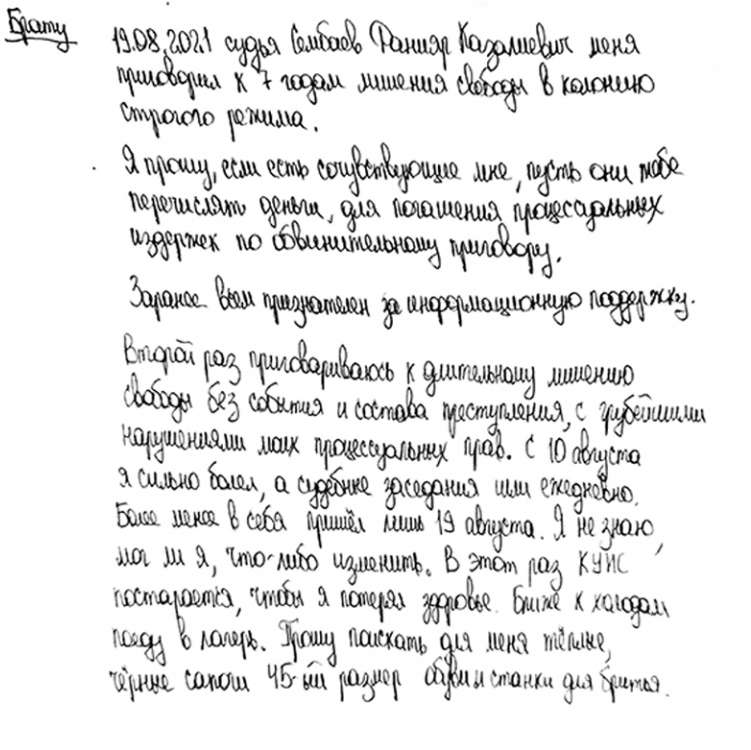 Брату
19.08.2021 судья Сембаев Данияр Казалиевич меня
приговорил к 7 годам лишения свободы в колонию
строгого режима.
Я прошу, если есть сочувствующие мне, пусть они тебе
перечислят деньги, для погашения процессуальных
издержек по обвинительному приговору.
Заранее всем признателен за информационную поддержку.
Второй раз приговариваюсь к длительному лишению
свободы без события и состава преступления, с грубейшими
нарушениями моих процессуальных прав. С 10 августа
я сильно болел, а судебные заседания шли ежедневно.
Более менее в себя пришёл лишь 19 августа. Я не знаю,
мог ли я, что-либо изменить. В этот раз КУИС
постарается, чтобы я потерял здоровье. Ближе к холодам
поеду в лагерь. Прошу поискать для меня тёплые,
чёрные сапоги 45-ый размер обуви и станки для бритья.